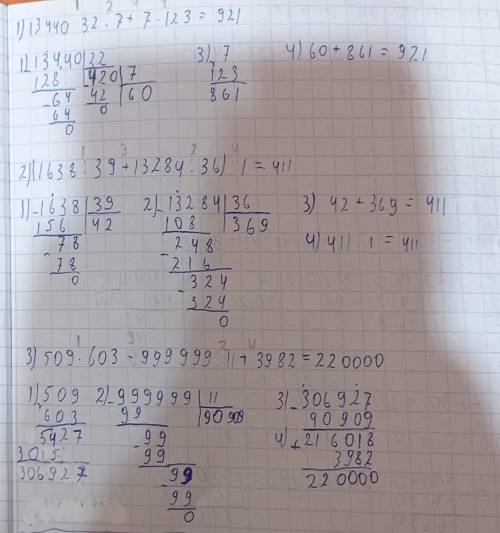 1 2 4 3
1) 13440 : 32 : 7 + 7 · 123 = 921
1) 13440 | 32 3) 7 4) 60 + 861 = 921
128 420 | 7 123
- 64 42 60 861
64 0
0
1 3 2 4
2) (1638 : 39 + 13284 : 36) : 1 = 411
1) - 1638 | 39 2) - 13284 | 36 3) 42 + 369 = 411
156 42 108 369
- 78 - 248 4) 411 : 1 = 411
78 216
0 - 324
324
0
1 3 2 4
3) 509 · 603 - 999999 : 11 + 3982 = 220000
1) 509 2) - 999999 | 11 3) - 306927
603 99 90909 90909
5427 - 99 4) + 216018
3015 99 3982
306927 - 99 220000
99
0